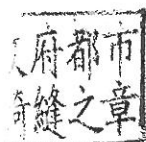 市章
都之
府縫